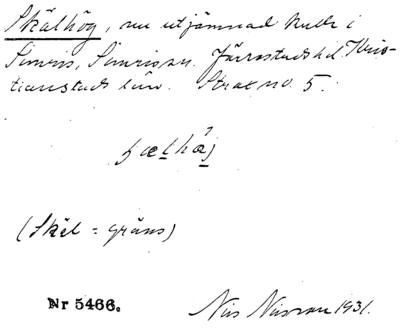 Skälhög, nu utjämnad kulle i
Simris, Simris sn. Järrestads hd. Kris-
tianstads län. Strax no. 5.
(Skäl = gräns)
Nr 5466.
Nils Nilsson 1931.